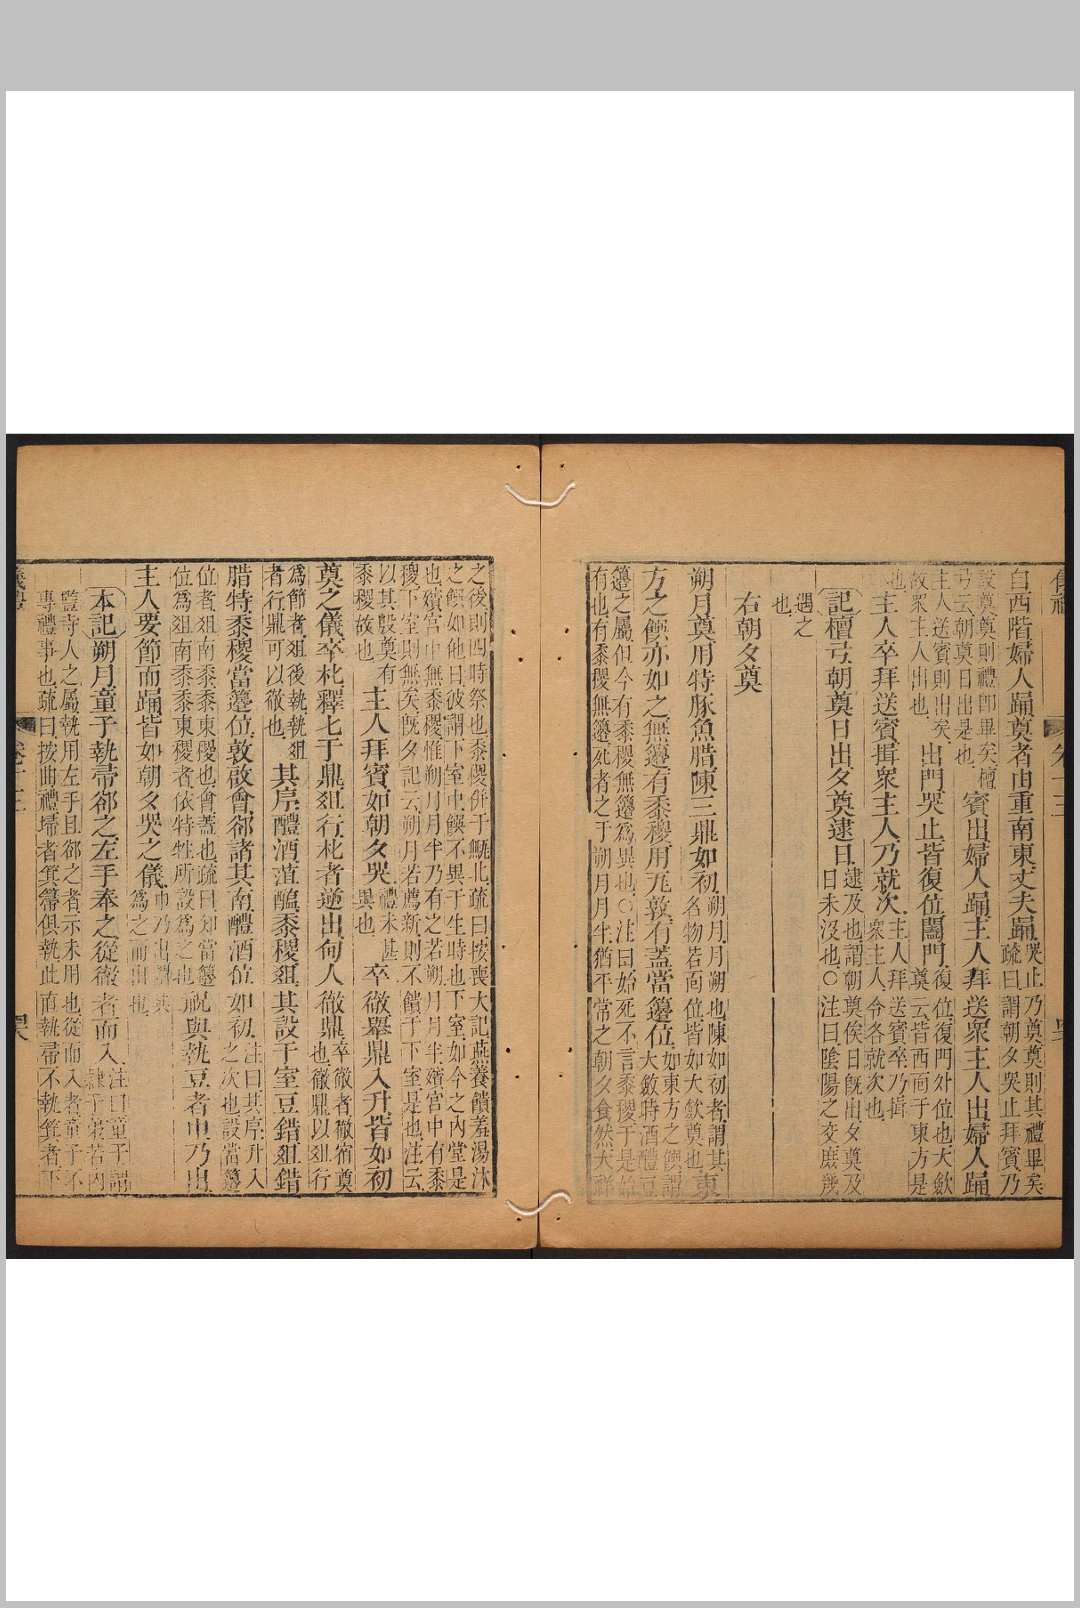 自西階婦人踊奠者由重南東丈夫踊哭止乃奠奠則其禮畢矣
疏曰謂朝夕哭止拜賓乃
設奠奠則禮卽畢矣檀
弓云朝奠日出是也
賓出婦人踊主人拜送眾主人出婦人踊
主人送賓則出矣
故眾主人出也
出門哭止皆復位闔門復位復門外位也大斂
奠云皆西面于東方是
也
主人卒拜送賓揖眾主人乃就次主人拜送賓卒乃揖
眾主人令各就次也
記檀弓朝奠日出夕奠逮日逮及也謂朝奠俟日既出夕奠及
日未沒也○注曰陰陽之交庶幾
遇之
也
右朝夕奠
朔月奠用特豚魚腊陳三鼎如初朔月月朔也陳如初者謂其
名物若面位皆如大斂奠也
東
方之饌亦如之無籩有黍稷用瓦敦有蓋當籩位如東方之饌謂
大斂時酒醴豆
籩之屬但今有黍稷無籩為異也○注曰始死不言黍稷于是始
有也有黍稷無籩死者之于朔月月半猶平常之朝夕食然大祥
之後則四時祭也黍稷併于甒北疏曰按喪大記燕養饋羞湯沐
之饌如他日彼謂下室中饌不異于生時也下室如今之內堂是
也殯宮中無黍稷惟朔月月半乃有之若朔月月半殯宮中有黍
稷下室則無矣既夕記云朔月若薦新則不饋于下室是也注云
以其殷奠有
黍稷故也
主人拜賓如朝夕哭禮未甚
異也
卒徹舉鼎入升皆如初
奠之儀卒朼釋匕于鼎俎行朼者逆出甸人徹鼎卒徹者徹宿奠
也徹鼎以俎行
為節者俎後執執俎
者行鼎可以徹也
其序醴酒菹醢黍稷俎其設于室豆錯俎錯
腊特黍稷當籩位敦啟會卻諸其南醴酒位如初注曰其序升入
之次也設當籩
位者俎南黍黍東稷也會蓋也疏曰知當籩
位為俎南黍黍東稷者依特牲所設為之也
祝與執豆者巾乃出
主人要節而踊皆如朝夕哭之儀
為之而出也
本記朔月童子執帚卻之左手奉之從徹者而入注曰童子謂
隸子弟若內
豎寺人之屬執用左手且卻之者示未用也從而入者童子不
專禮事也疏曰按曲禮埽者箕帚俱執此直執帚不執箕者下